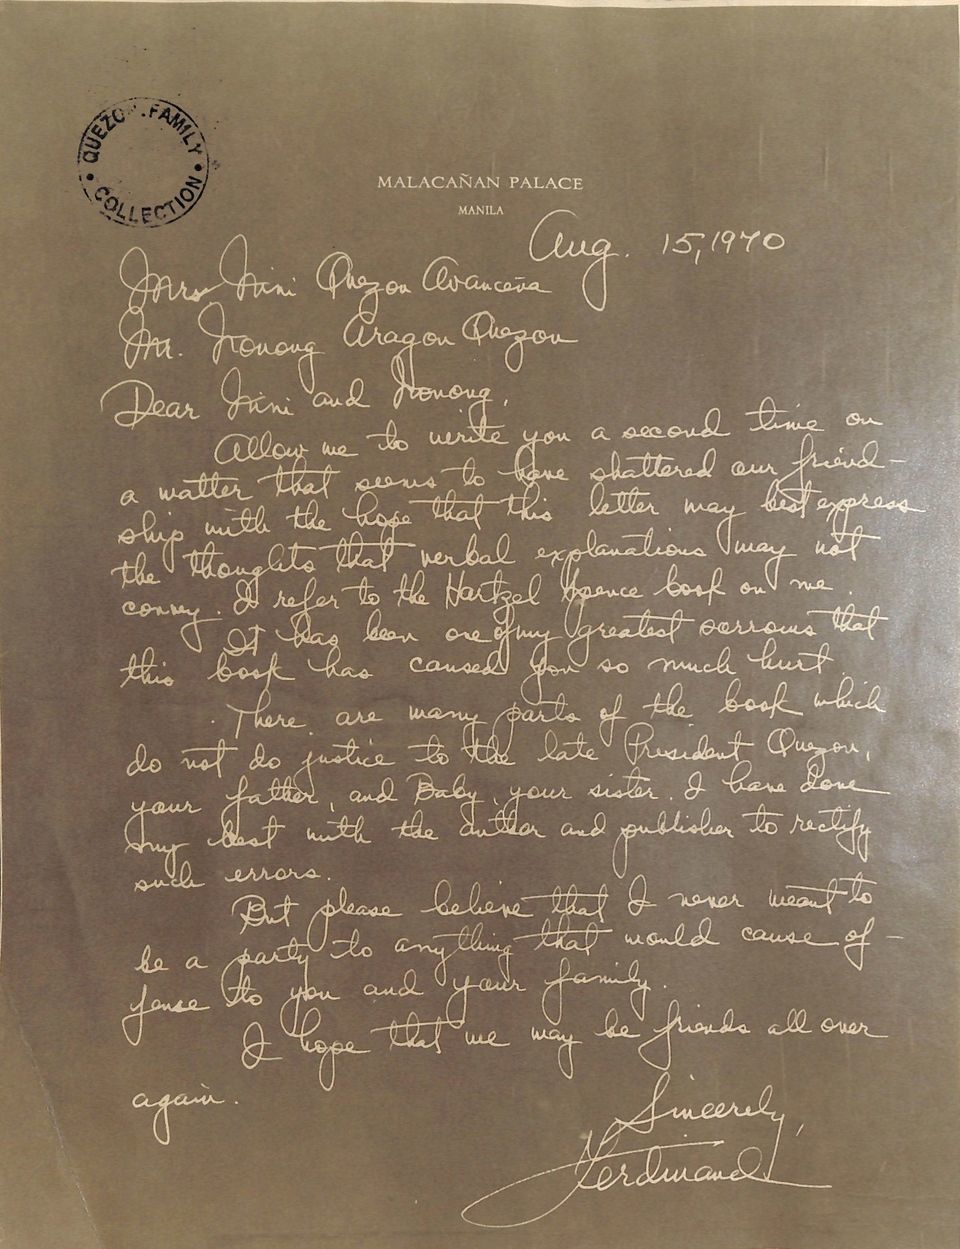 QUEZON FAMILY
COLLECTION
MALACAÑAN PALACE
MANILA
Aug. 15, 1970
Mrs Nini Quezon Avanceña
Mr. Nonong Aragon Quezon
Dear Nini and Nonong,
Allow me to write you a second time on
a matter that seems to have shattered our friend-
ship with the hope that this letter may best express
the thoughts that verbal explanations may not
convey. I refer to the Hartzel Spence book on me.
It has been one of my greatest sorrows that
this book has caused you so much hurt.
There are many parts of the book which
do not do justice to the late President Quezon,
your father, and Baby, your sister. I have done
my best with the author and publisher to rectify
such errors.
But please believe that I never meant to
be a party to anything that would cause of-
fense to you and your family.
I hope that we may be friends all over
again.
Sincerely,
Ferdinand